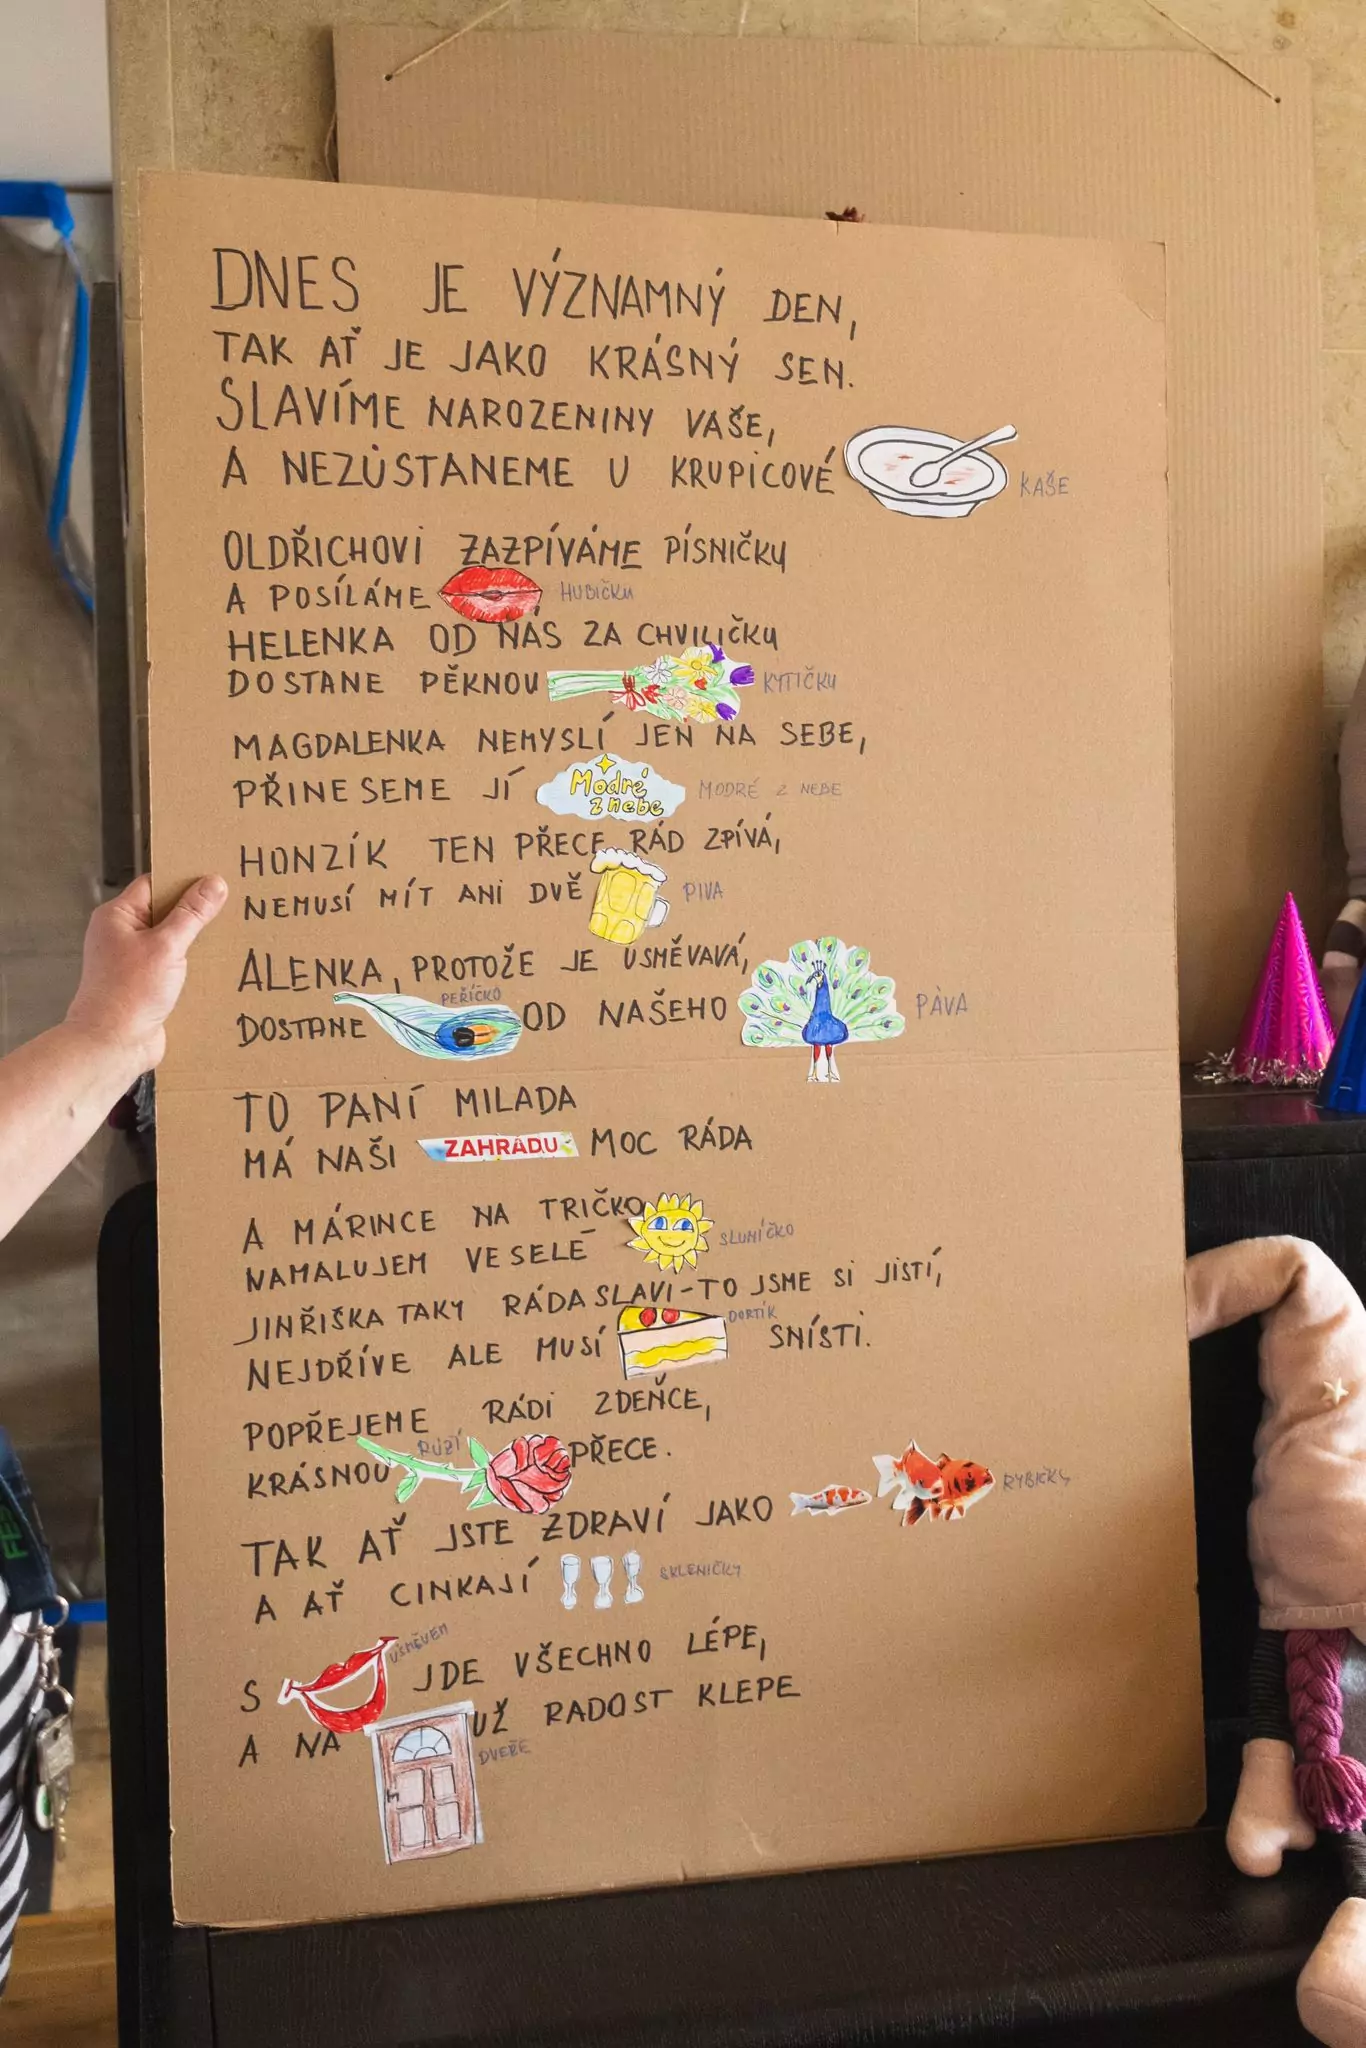 DNES JE VÝZNAMNÝ DEN,
TAK AŤ JE JAKO KRÁSNÝ SEN.
SLAVÍME NAROZENINY VAŠE,
A NEZŮSTANEME U KRUPICOVÉ KAŠE
OLDŘICHOVI ZAZPÍVÁME PÍSNIČKU
A POSÍLÁME HUBIČKU
HELENKA OD NÁS ZA CHVILIČKU
DOSTANE PĚKNOU KYTIČKU
MAGDALENKA NEMYSLÍ JEN NA SEBE,
PŘINESEME JÍ Modré z nebe MODRÉ Z NEBE
HONZÍK TEN PŘECE RÁD ZPÍVÁ,
NEMUSÍ MÍT ANI DVĚ PIVA
ALENKA, PROTOŽE JE USMĚVAVÁ,
DOSTANE PEŘÍČKO OD NAŠEHO PÁVA
TO PANÍ MILADA
MÁ NAŠI ZAHRADU MOC RÁDA
A MÁRINCE NA TRIČKO
NAMALUJEM VESELÉ SLUNÍČKO
JINŘIŠKA TAKY RÁDA SLAVI-TO JSME SI JISTÍ,
NEJDŘÍVE ALE MUSÍ DORTÍK SNÍSTI.
POPŘEJEME RÁDI ZDEŇCE,
KRÁSNOU RŮŽI PŘECE.
TAK AŤ JSTE ZDRAVÍ JAKO RYBIČKY
A AŤ CINKAJÍ SKLENIČKY
S ÚSMĚVEM JDE VŠECHNO LÉPE,
A NA DVEŘE UŽ RADOST KLEPE